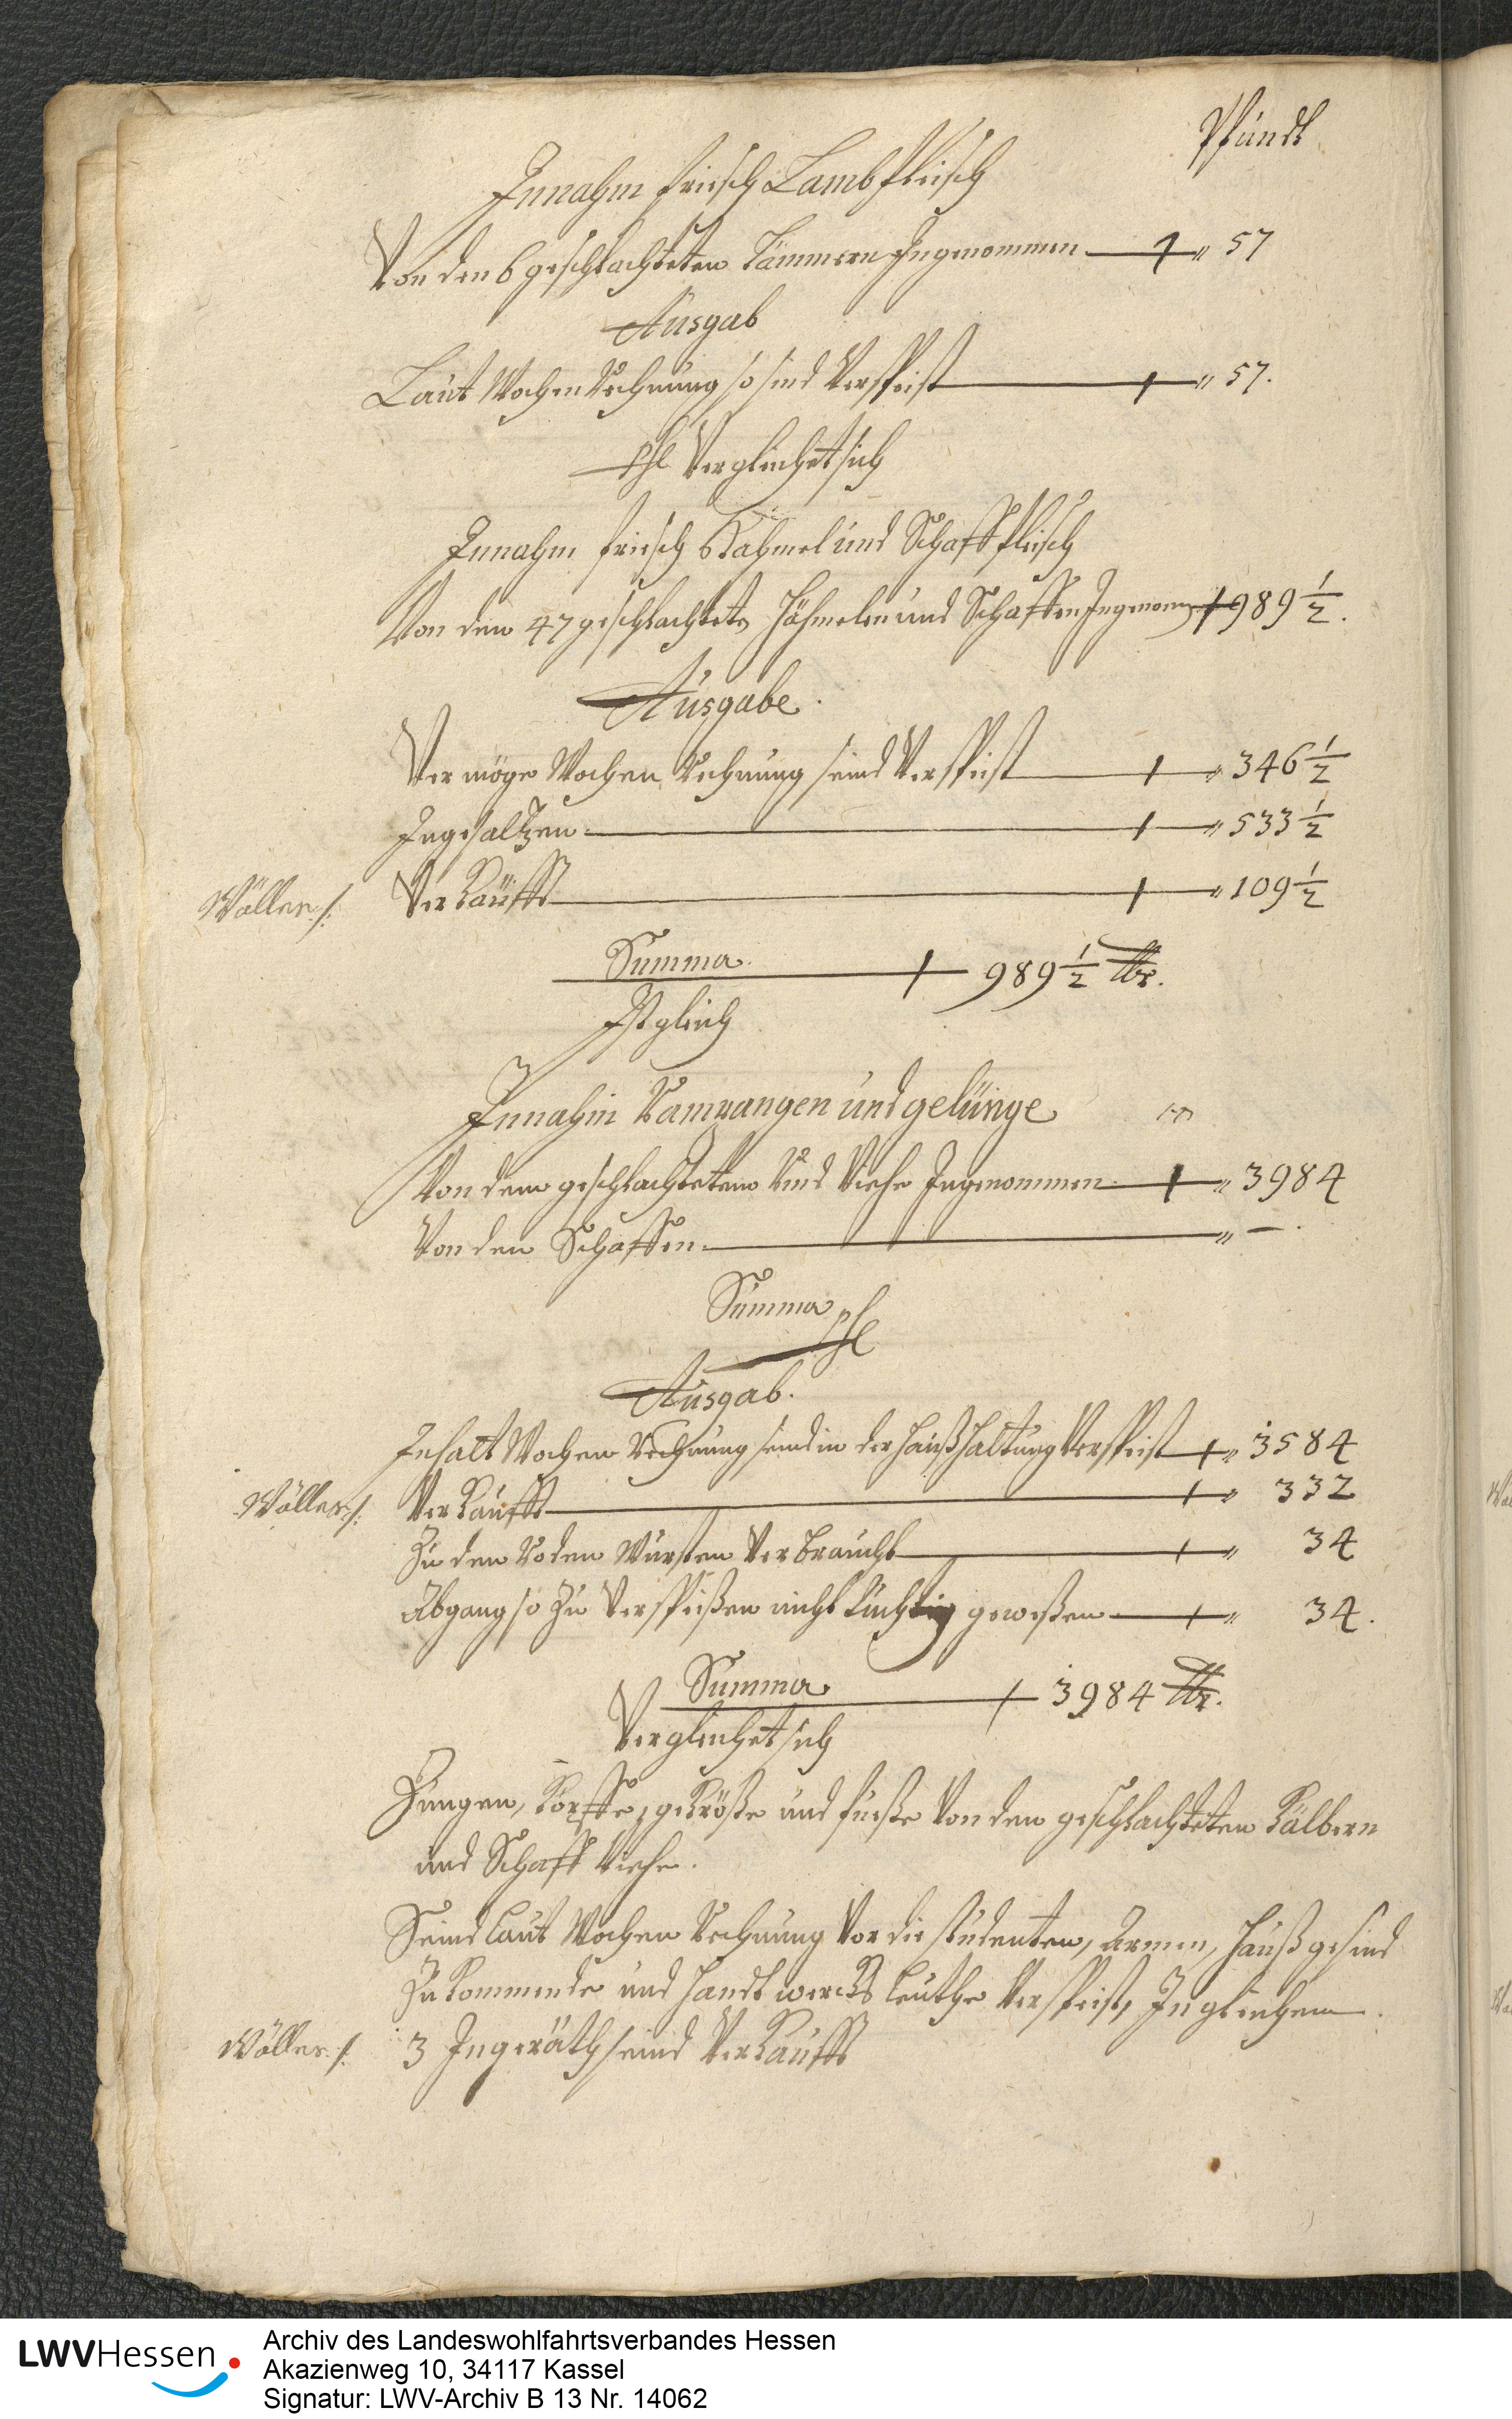 Pfundt
Innahm frisch Lambfleisch
Von den 6 geschlachteten Lämmern Ingenommen — " 57
Ausgab
Laut Wochen Rechnung so sind Verspeist — " 57.
Vergleichet sich
Innahm frisch Hahmel und Schaff fleisch
Von den 47 geschlachtete Hähmelen und Schaffen Ingenom̅ 989 1/2.
Ausgabe.
Vermöge Wochen Rechnung seind Verspeist — " 346 1/2
Ingesaltzen — " 533 1/2
Wöller /: Verkaufft — " 109 1/2
Summa — 989 1/2 lbr.
Ist gleich
Innahm Rampangen und gelünge
Von dem geschlachteten Rind Viehe Ingenommen — " 3984
Von den Schaffen — " —.
Summa
Ausgab.
Inhalt Wochen Rechnung seind in der Haußhaltung Verspeist — " 3584
Wöller /: Verkaufft — " 332
Zu den Roden Wursten Verbraucht — " 34
Abgang so zu Verspeißen nicht tüchtig geweßen — " 34.
Summa — 3984 lbr.
Vergleichet sich
Zungen, Köpffe, gekröße und füeße Von den geschlachteten Kälbern
und Schaff Viehe.
Seind laut Wochen Rechnung Vor die studenten, Armen, Haußgesind
Zukommende und Handtwercks leuthe Verspeist, Ingleichem
Wöller /: 3 Ingeräth seind Verkaufft
LWVHessen
Archiv des Landeswohlfahrtsverbandes Hessen
Akazienweg 10, 34117 Kassel
Signatur: LWV-Archiv B 13 Nr. 14062